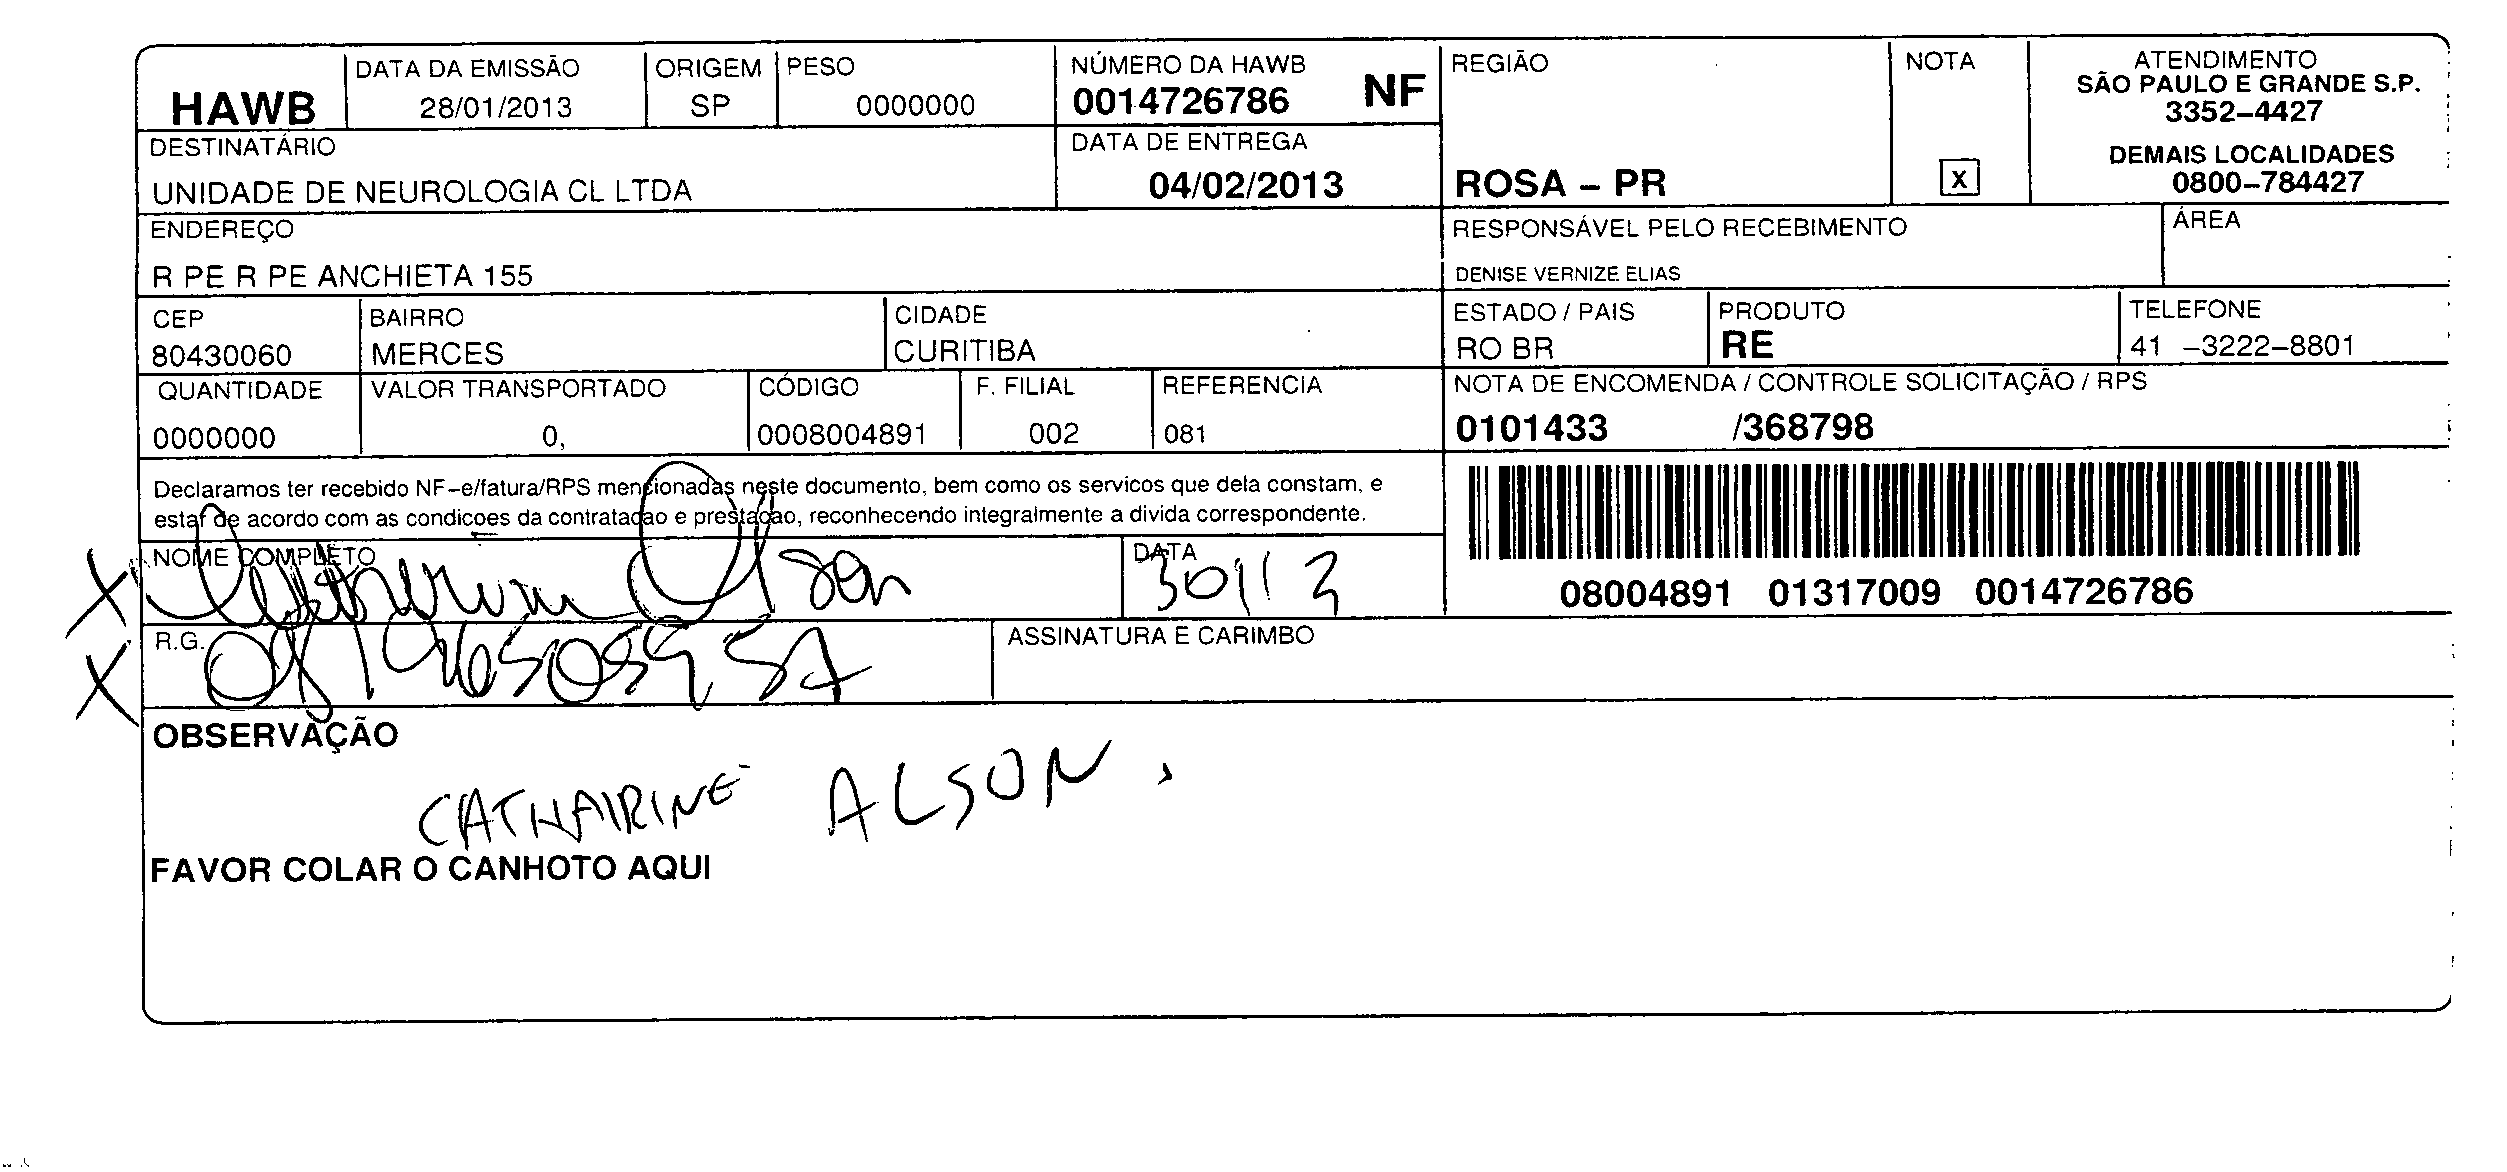 HAWB
DATA DA EMISSÃO
28/01/2013
ORIGEM
SP
PESO
0000000
NÚMERO DA HAWB
0014726786 NF
REGIÃO
ROSA – PR
NOTA
X
ATENDIMENTO
SÃO PAULO E GRANDE S.P.
3352–4427
DEMAIS LOCALIDADES
0800–784427
DESTINATÁRIO
UNIDADE DE NEUROLOGIA CL LTDA
DATA DE ENTREGA
04/02/2013
ENDEREÇO
R PE R PE ANCHIETA 155
RESPONSÁVEL PELO RECEBIMENTO
DENISE VERNIZE ELIAS
ÁREA
CEP
80430060
BAIRRO
MERCES
CIDADE
CURITIBA
ESTADO / PAIS
RO BR
PRODUTO
RE
TELEFONE
41 –3222–8801
QUANTIDADE
0000000
VALOR TRANSPORTADO
0,
CÓDIGO
0008004891
F. FILIAL
002
REFERENCIA
081
NOTA DE ENCOMENDA / CONTROLE SOLICITAÇÃO / RPS
0101433 /368798
Declaramos ter recebido NF–e/fatura/RPS mencionadas neste documento, bem como os servicos que dela constam, e
estar de acordo com as condicoes da contratacao e prestacao, reconhecendo integralmente a divida correspondente.
08004891 01317009 0014726786
NOME COMPLETO
DATA
R.G.
ASSINATURA E CARIMBO
OBSERVAÇÃO
CATHAIRINE ALSON.
FAVOR COLAR O CANHOTO AQUI